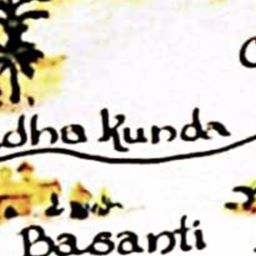 dha Kunda
Basanti